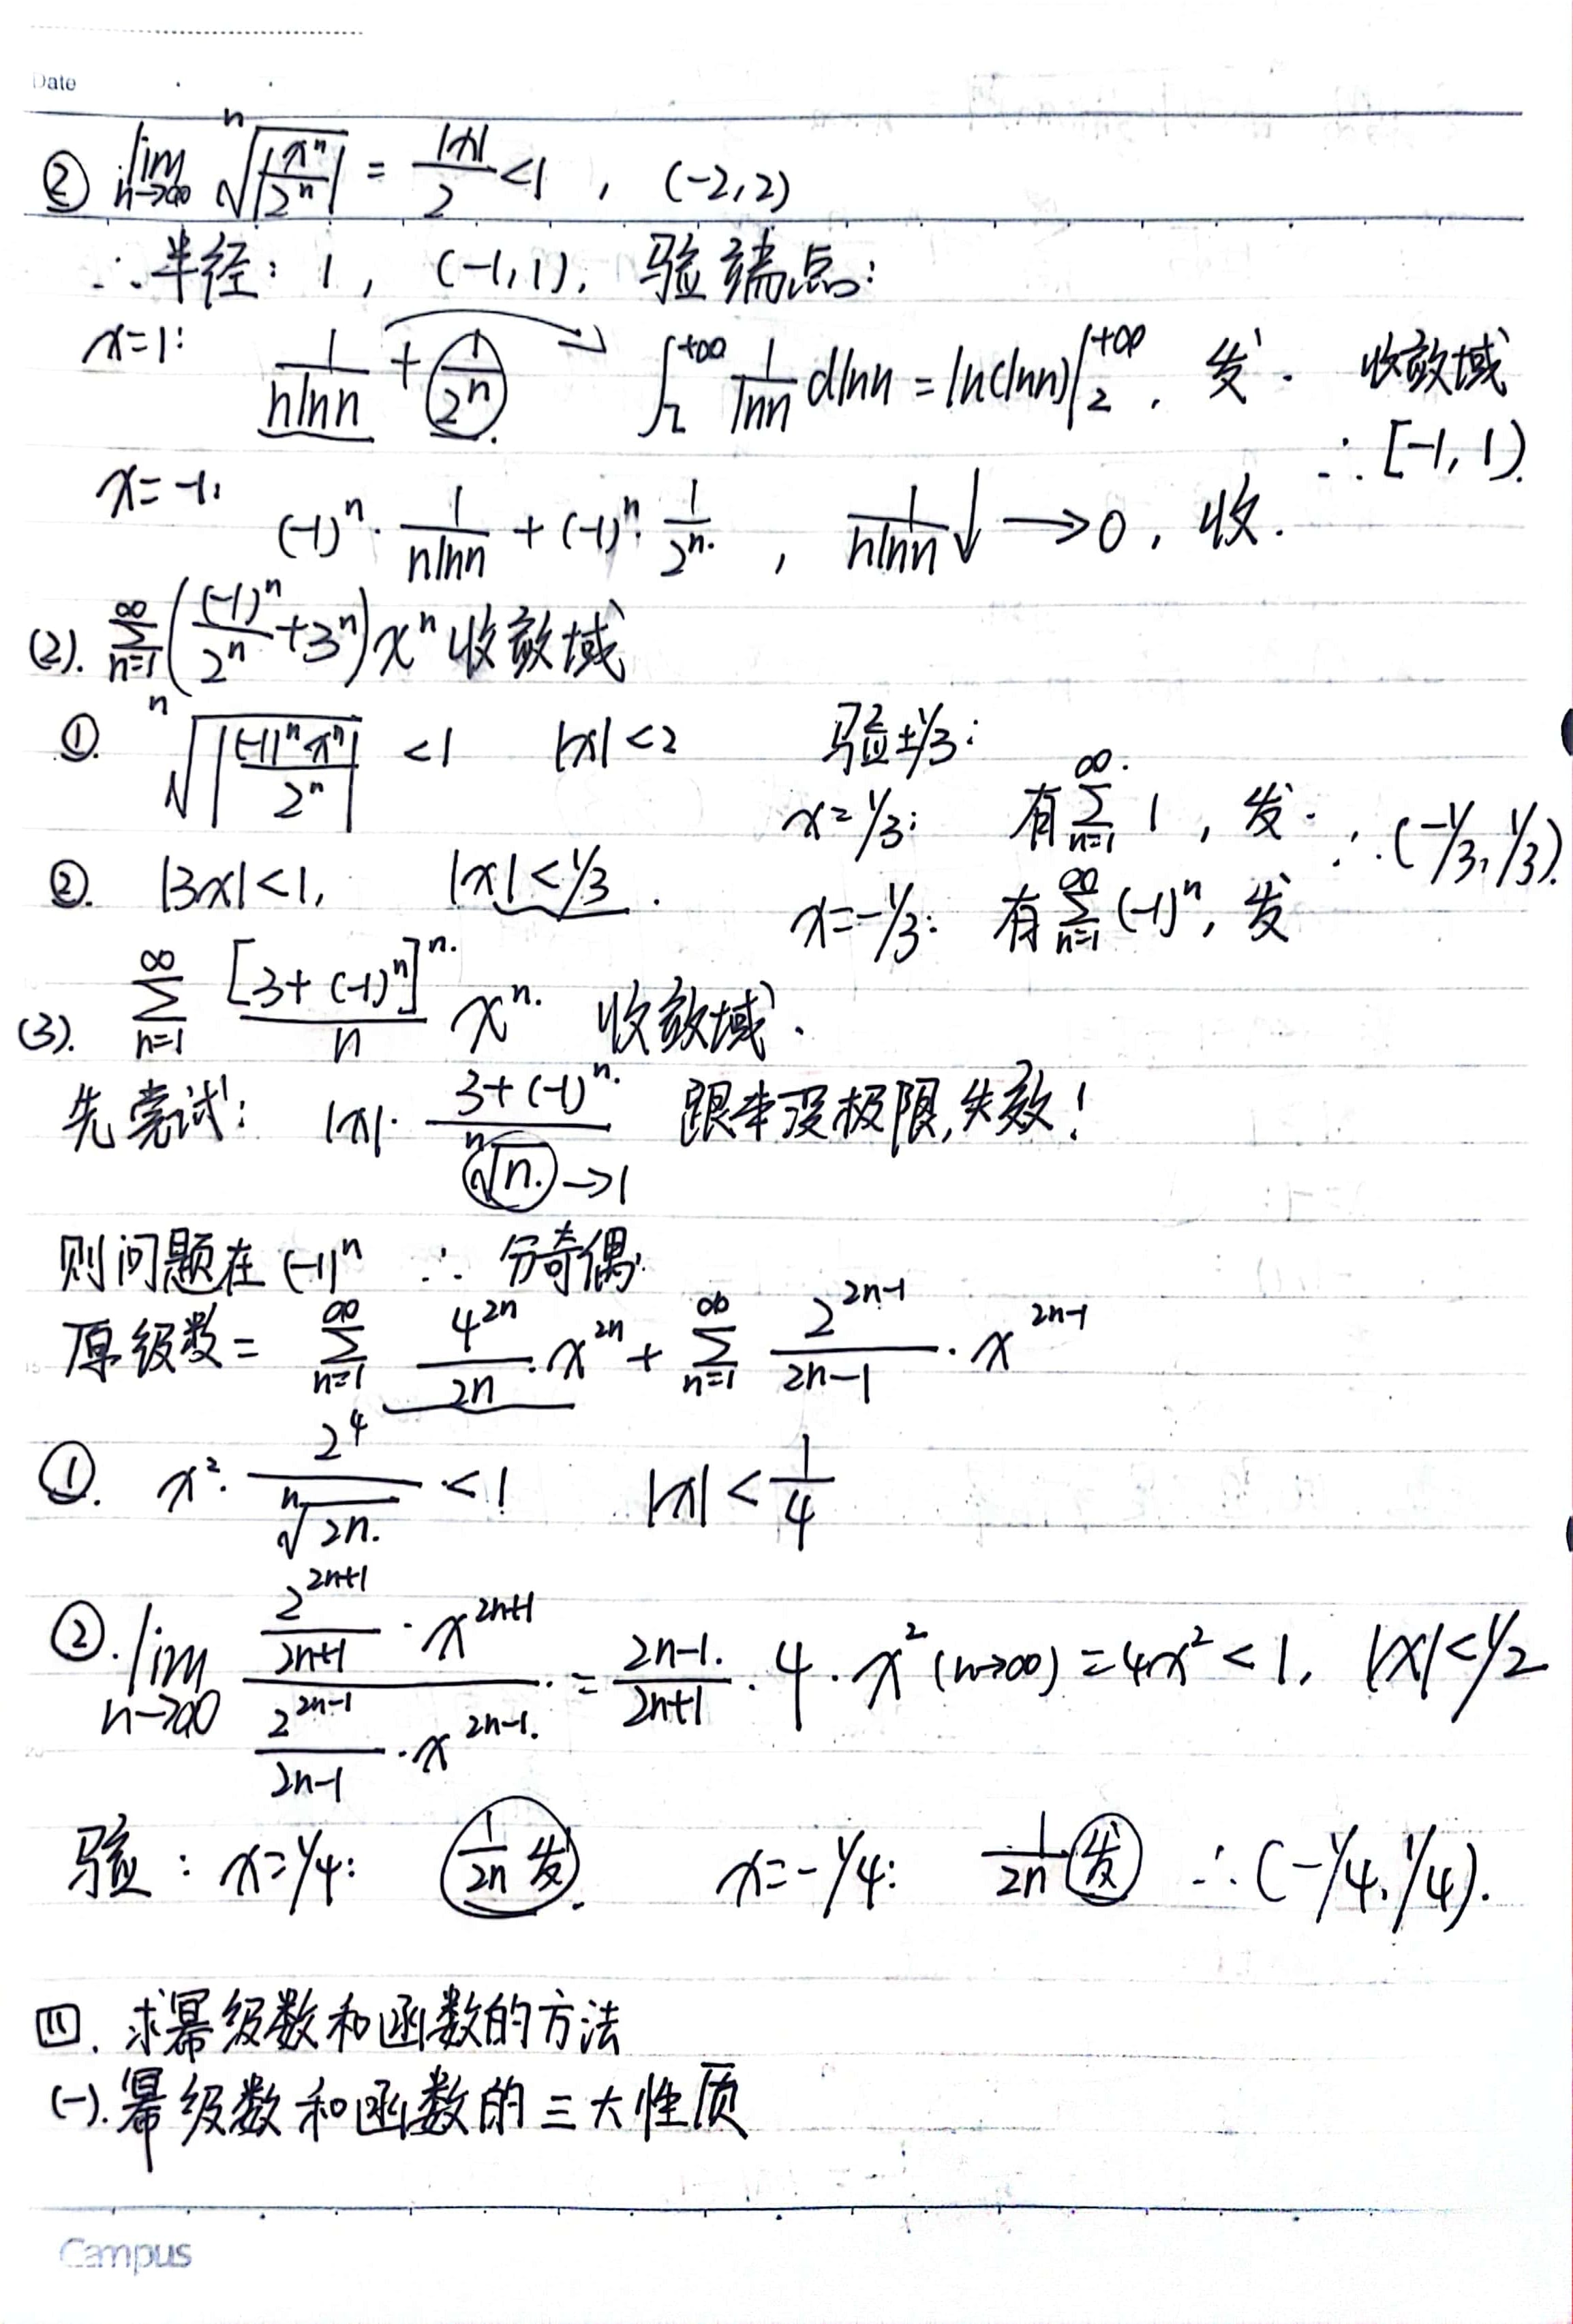 Date
② lim n→∞ ⁿ√|xⁿ/2ⁿ| = |x|/2 <1 , (-2,2)
∴半径: 1, (-1,1). 验端点:
x=1: 1/(nlnn) + 1/2ⁿ ∫₂^{+∞} 1/lnn dlnn = ln(lnn)|₂^{+∞}, 发. 收敛域
∴[-1,1).
x=-1: (-1)ⁿ·1/(nlnn) + (-1)ⁿ·1/2ⁿ , 1/(nlnn)↓→0, 收.
(2). ∑_{n=1}^{∞} ((-1)ⁿ/2ⁿ+3ⁿ)xⁿ 收敛域
①. ⁿ√|(-1)ⁿxⁿ/2ⁿ| <1 |x|<2 验±1/3:
x=1/3: 有∑_{n=1}^{∞} 1, 发. ∴(-1/3,1/3).
②. |3x|<1, |x|<1/3. x=-1/3: 有∑_{n=1}^{∞}(-1)ⁿ, 发
(3). ∑_{n=1}^{∞} [3+(-1)ⁿ]ⁿ/n xⁿ. 收敛域.
先尝试: |x|·(3+(-1)ⁿ)/ⁿ√n →1 跟本没极限,失效!
则问题在(-1)ⁿ ∴ 分奇偶.
原级数= ∑_{n=1}^{∞} 4^{2n}/2n·x^{2n} + ∑_{n=1}^{∞} 2^{2n-1}/(2n-1)·x^{2n-1}
①. x²·2⁴/ⁿ√2n <1 |x|<1/4
②. lim n→∞ (2^{2n+1}/(2n+1)·x^{2n+1})/(2^{2n-1}/(2n-1)·x^{2n-1}) = (2n-1)/(2n+1)·4·x²(n→∞)=4x²<1, |x|<1/2
验: x=1/4: 1/2n 发. x=-1/4: 1/2n 发 ∴(-1/4,1/4).
四. 求幂级数和函数的方法
(一).幂级数和函数的三大性质
Campus